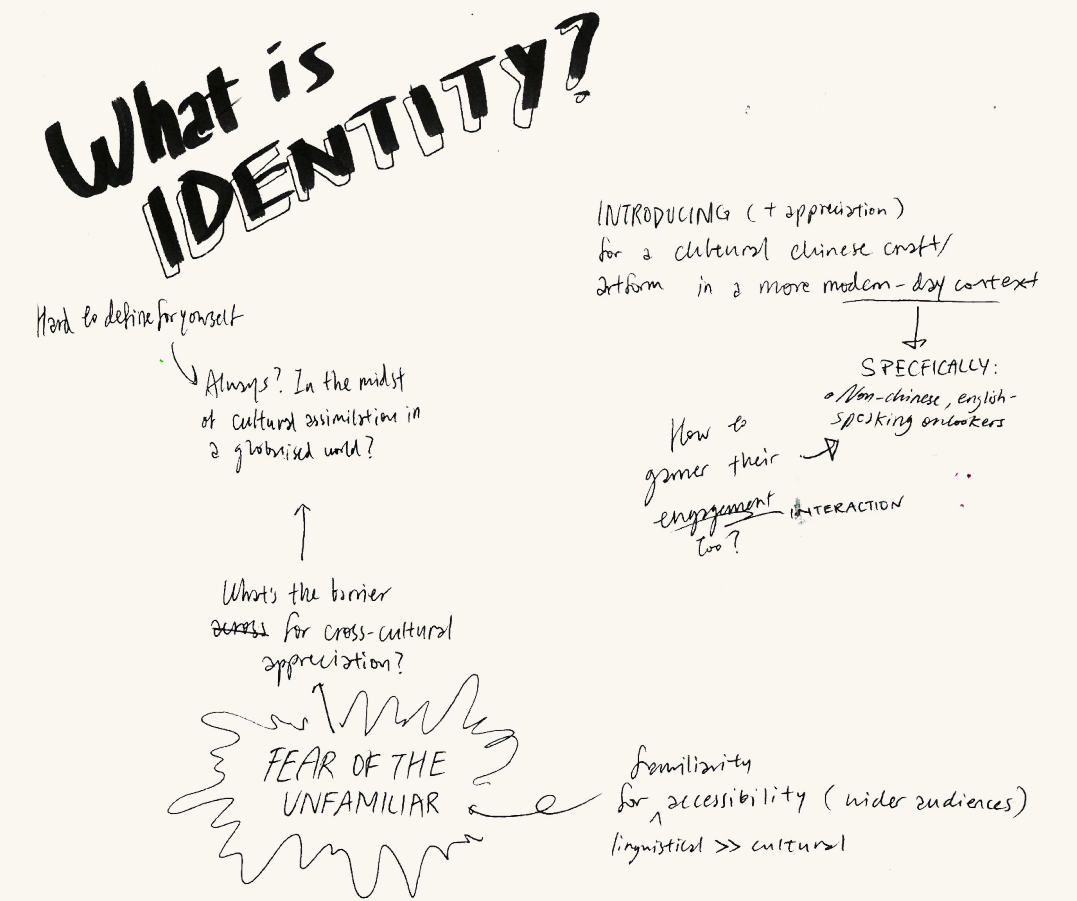 What is
IDENTITY?
Hard to define for yourself
Always? In the midst
of cultural assimilation in
a globalised world?
What's the barrier
across for cross-cultural
appreciation?
FEAR OF THE
UNFAMILIAR
INTRODUCING (+ appreciation)
for a cultural chinese craft/
artform in a more modern-day context
SPECFICALLY:
• Non-chinese, english-
speaking onlookers
How to
garner their
engagement INTERACTION
too?
familiarity
for ^ accessibility (wider audiences)
linguistical >> cultural